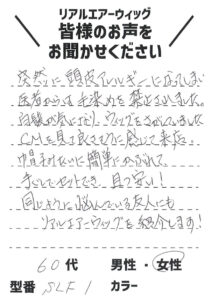 リアルエアーウィッグ
皆様のお声を
お聞かせください
突然に頭皮アレルギーになってしまい
医者からは毛染めを禁止されました。
白髪が気になり、ウィッグをさがしていました
CMを見て良さそうに感じて来店。
帽子みたいに簡単にかぶれて
手ぐしでセットでき、見つ安い！
同じように悩んでいる友人にも
リアルエアーウィッグを紹介します！
60代 男性・女性
型番 SLF1 カラー